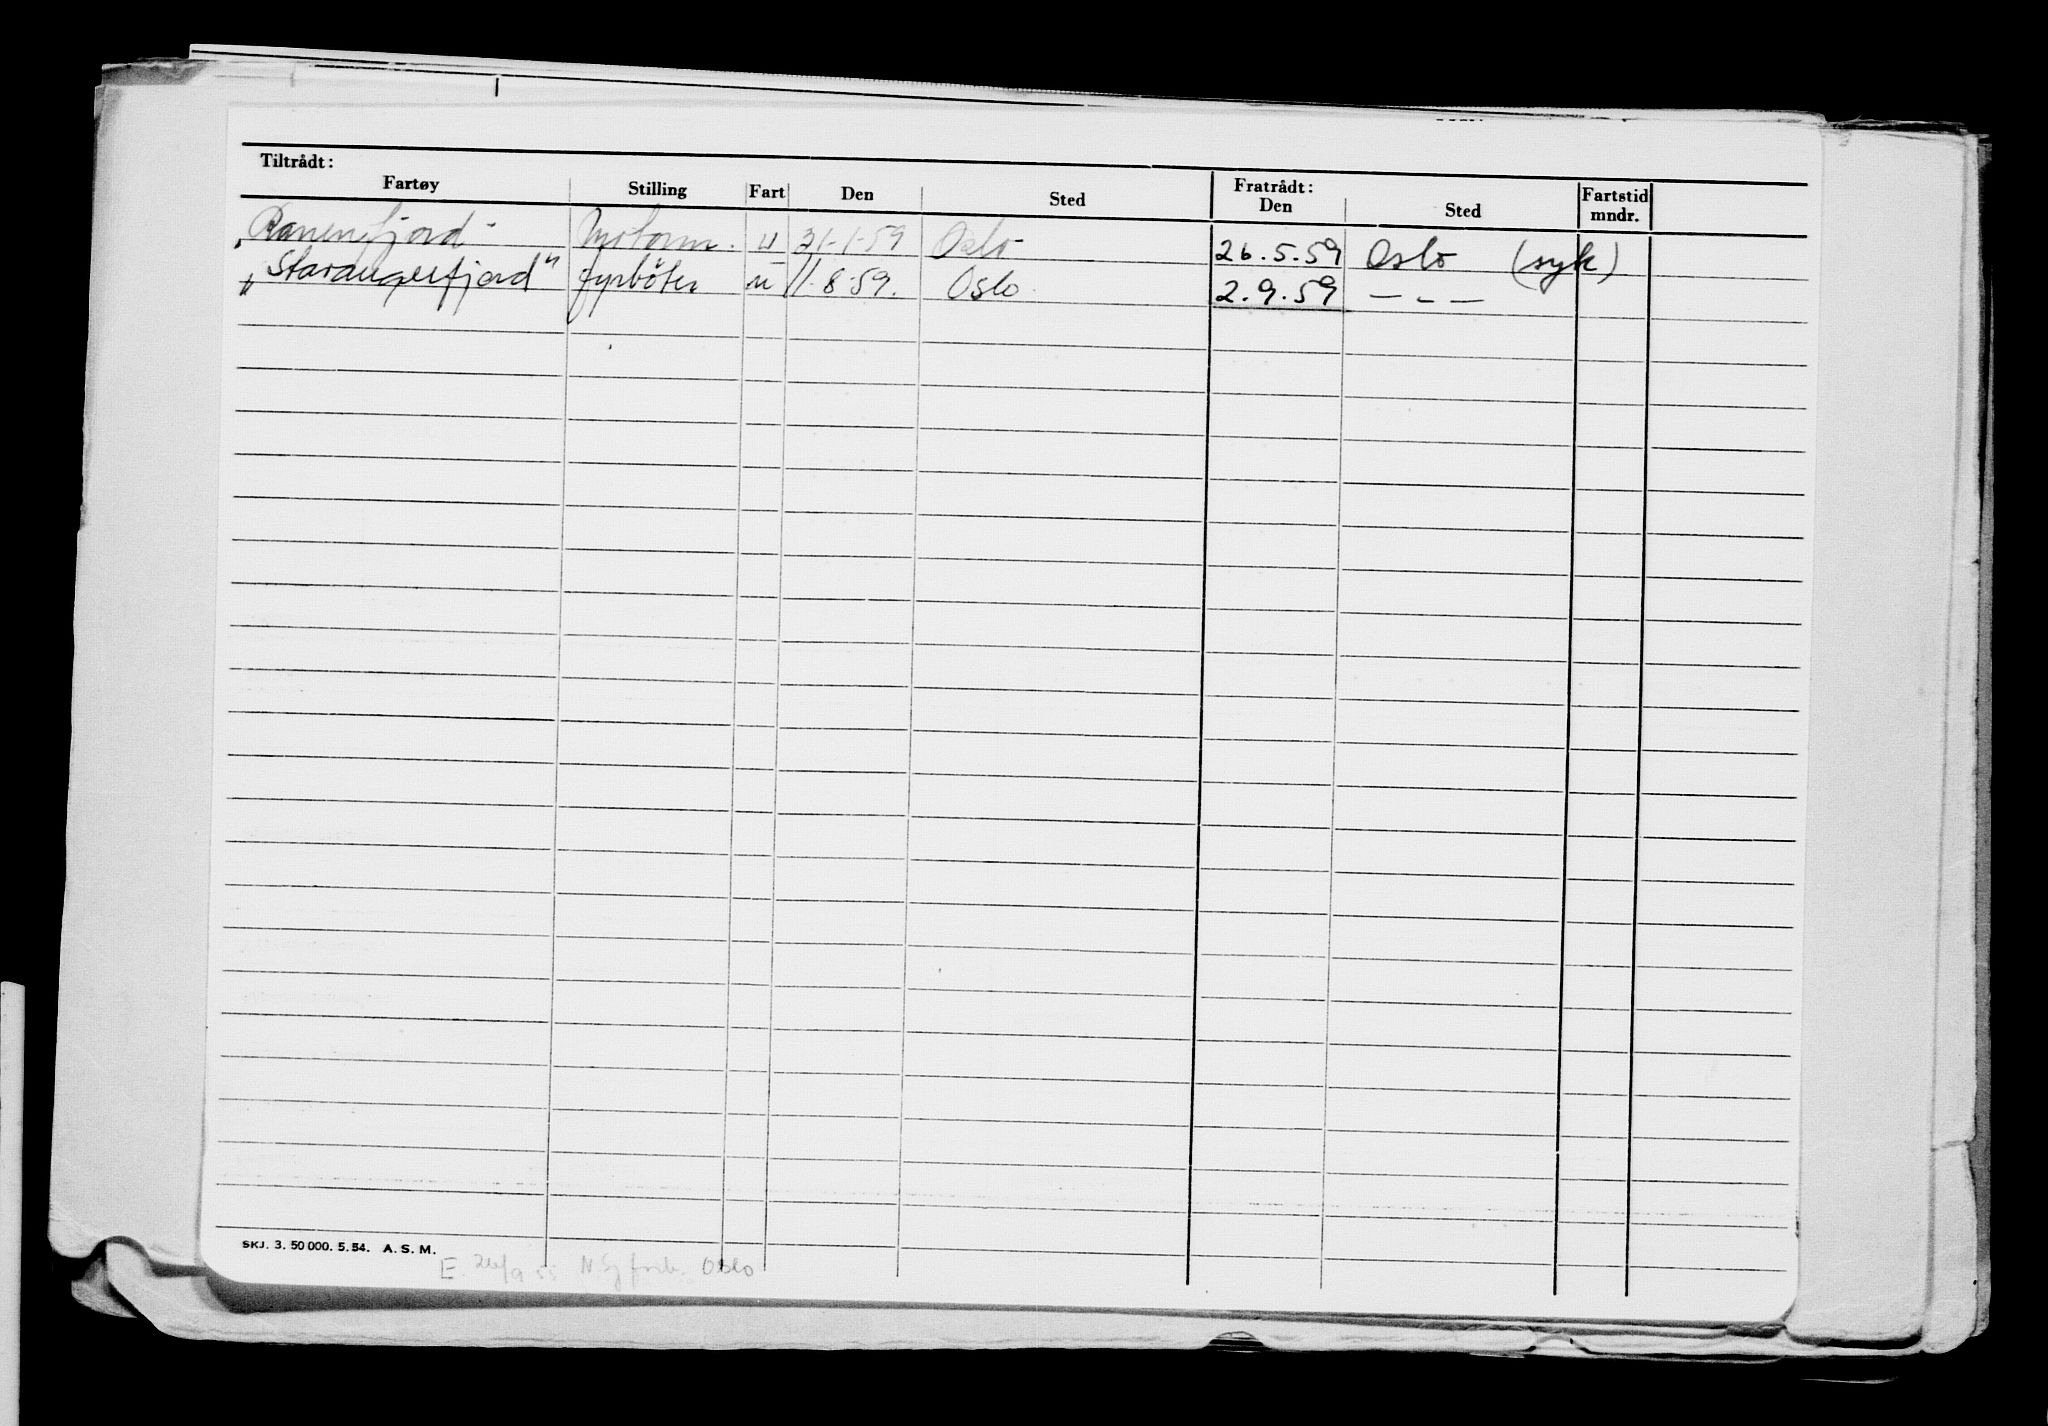 Tiltrådt: Fratrådt:
Fartøy Stilling Fart Den Sted Den Sted Fartstid mndr.
„Ranenfjord" Motorm. u 21-1-59 Oslo 26.5.59 Oslo (syk)
„Stavangerfjord" fyrbøter u 11-8-59. Oslo 2.9.59 — - —
SKJ. 3. 50 000. 5. 54. A. S. M.
E. 26/9 55 N. Sj forb. Oslo